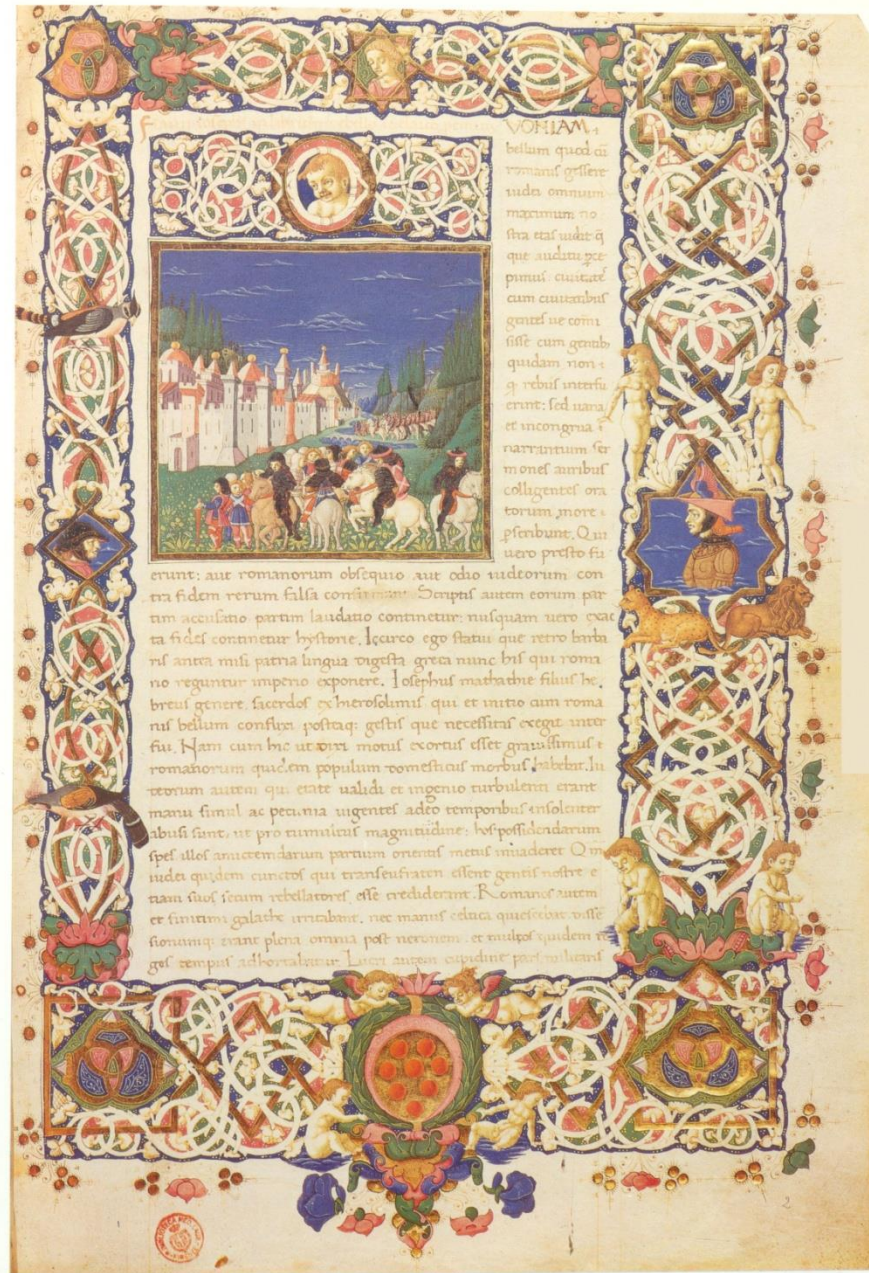 VONIAM
bellum quod cū
romanis gessere
iudei omnium
maximum no
stra etas uidit q̄
que auditu ꝑce
pimus ciuitates
cum ciuitatibus
gentes ue comi
sisse cum gentib;
quidam non
q̄ rebus interfu
erint: sed uana
et incongrua
narrantium ser
mones auribus
colligentes ora
torum more
ꝑscribunt. Qui
uero presto fu
erunt: aut romanorum obsequio aut odio iudeorum con
tra fidem rerum falsa Scriptis autem eorum par
tim accusatio partim laudatio continetur: nusquam uero exac
ta fides continetur hystorie. Iccirco ego statui que retro barba
ris antea misi patria lingua digesta greca nunc his qui roma
no reguntur imperio exponere. Iosephus mathathie filius he
breus genere, sacerdos ex hierosolimis qui et initio cum roma
nis bellum conflixi posteaq; gestis que necessitas exegit inter
fui. Nam cum hic ut dixi motus exortus esset grauissimus
romanorum quidem populum domesticus morbus habebat. Iu
deorum autem qui etate ualidi et ingenio turbulenti erant
manu simul ac pecunia uigentes adeo temporibus insolenter
abusi sunt, ut pro tumultus magnitudine: hos possidendarum
spes illos amittendarum partium orientis metus inuaderet Qm̄
iudei quidem cunctos qui trans eufraten essent gentis nostre e
tiam suos secum rebellatores esse crediderant. Romanos autem
et finitimi galathe irritabant. nec manus celtica quiescebat disse
sionumq; erant plena omnia post neronem. et multos quidem re
ges tempus adhortabatur Lucri autem cupidine pars militaris
2